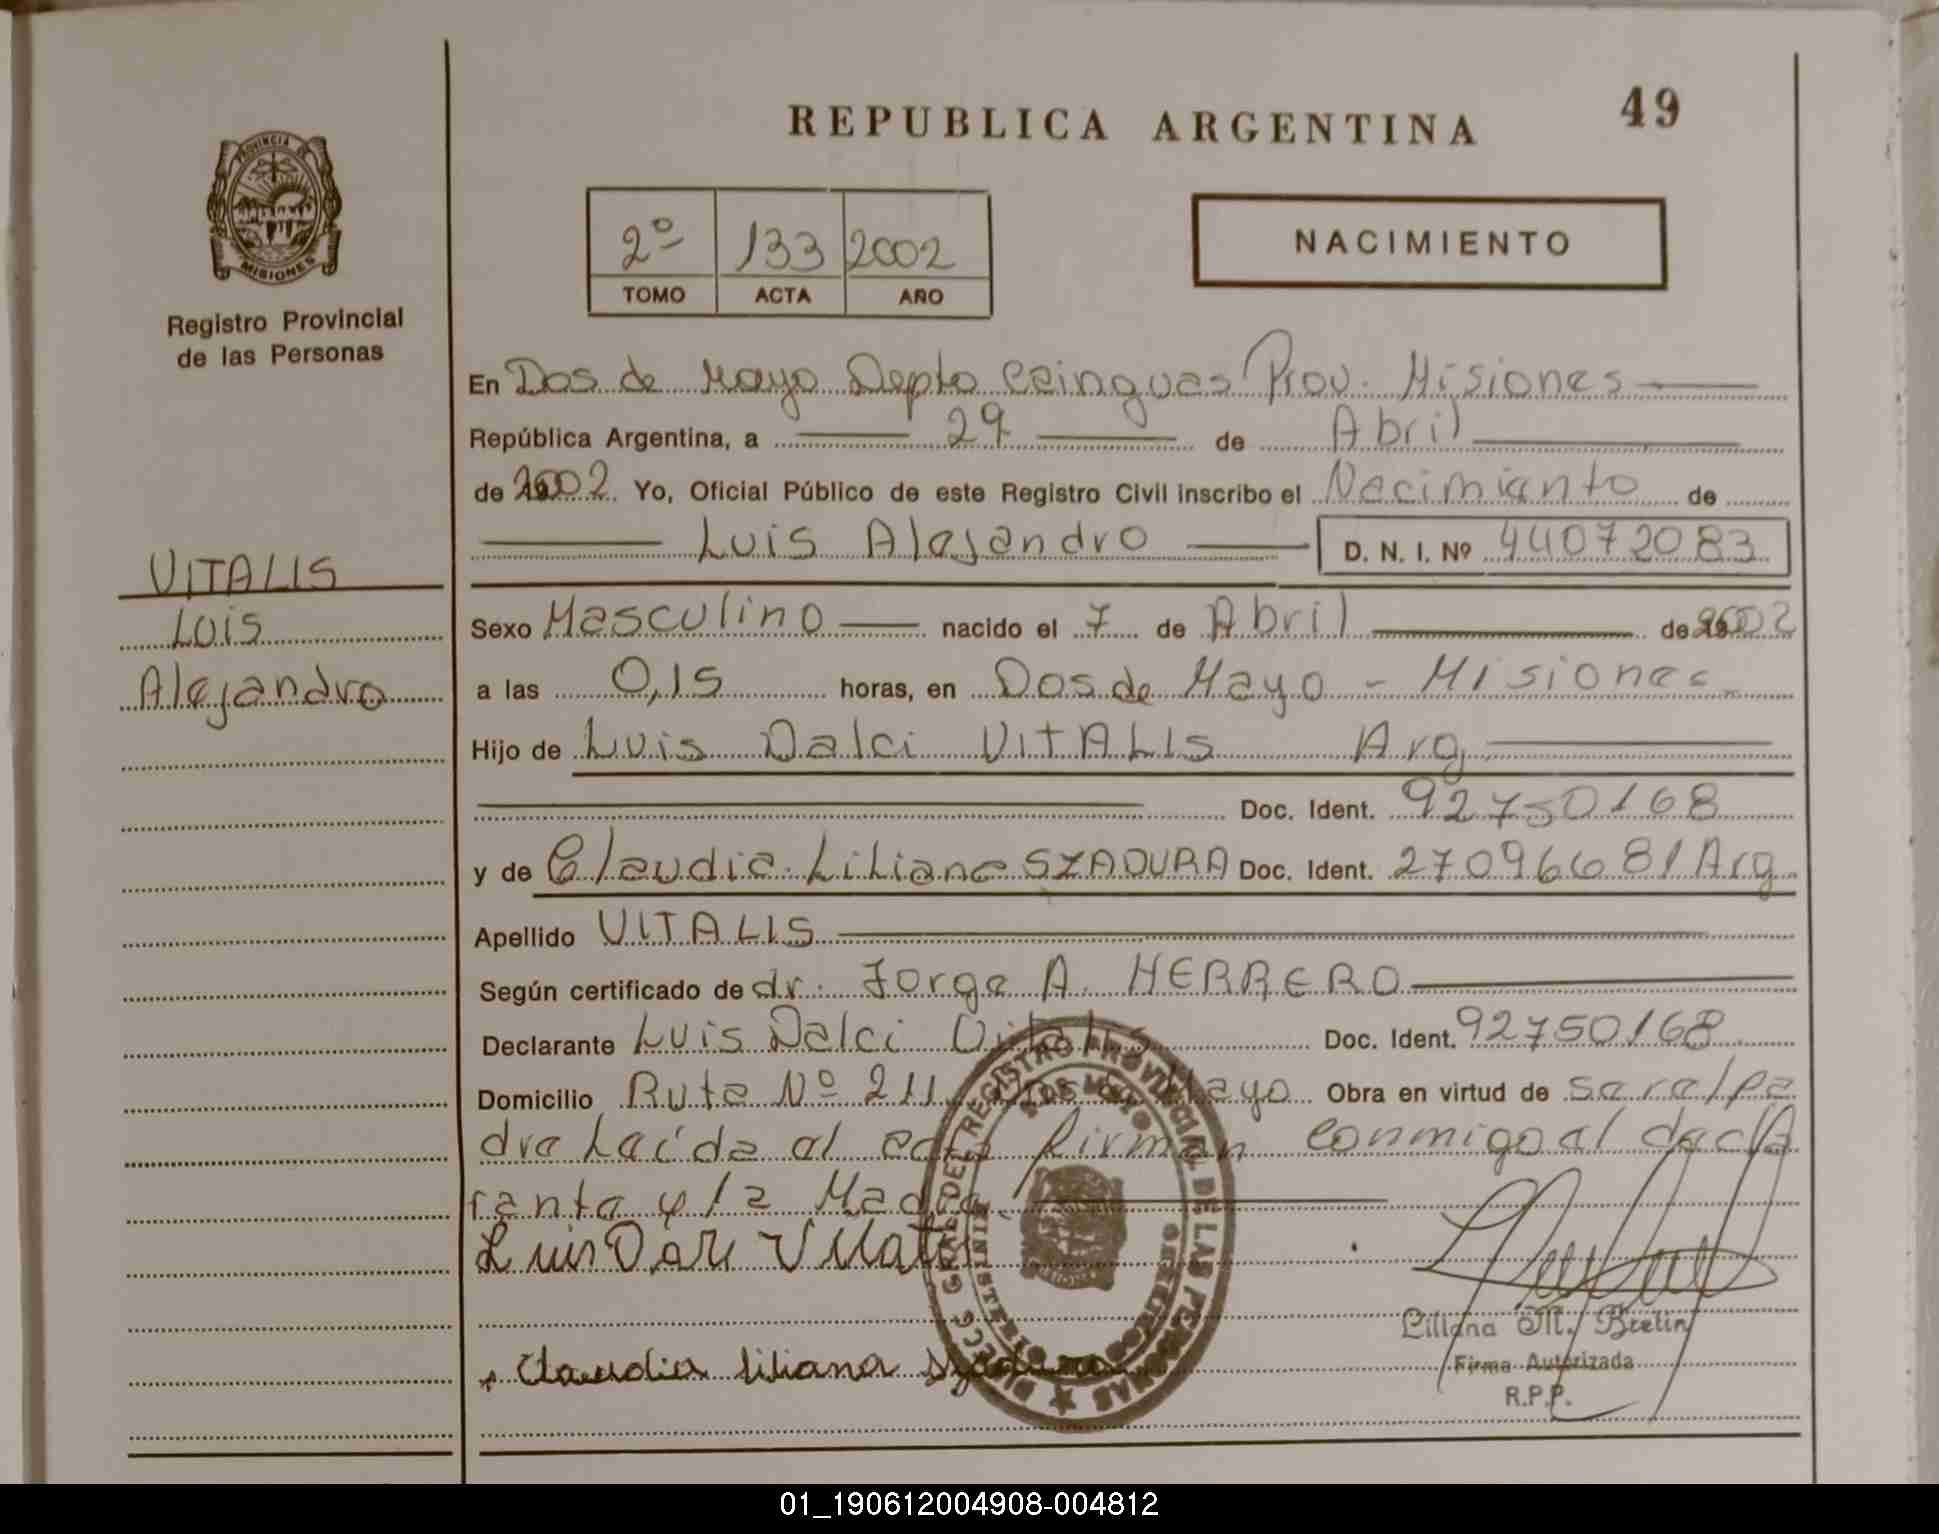 49
REPUBLICA ARGENTINA
PROVINCIA DE
MISIONES
Registro Provincial
de las Personas
2º 133 2002
TOMO ACTA AÑO
NACIMIENTO
En Dos de Mayo Depto Cainguas Prov. Misiones
República Argentina, a 29 de Abril
de 2002 Yo, Oficial Público de este Registro Civil inscribo el Nacimiento de
Luis Alejandro D. N. I. Nº 44072083
VITALIS
Luis
Alejandro
Sexo Masculino nacido el 7 de Abril de 2002
a las 0,15 horas, en Dos de Mayo - Misiones
Hijo de Luis Dalci VITALIS Arg.
Doc. Ident. 92750168
y de Claudia Liliana SZADURA Doc. Ident. 27096681 Arg.
Apellido VITALIS
Según certificado de dr. Jorge A. HERRERO
Declarante Luis Dalci Vitalis Doc. Ident. 92750168
Domicilio Ruta Nº 211 Dos de Mayo Obra en virtud de ser el pa
dre Leída el acta firman conmigo el decla
rante y la Madre.
Luis Dalci
Claudia Liliana Szadura
DIRECC. GRAL. DEL REGISTRO PROVINCIAL DE LAS PERSONAS
Liliana M. Bretin
Firma Autorizada
R.P.P.
01_190612004908-004812